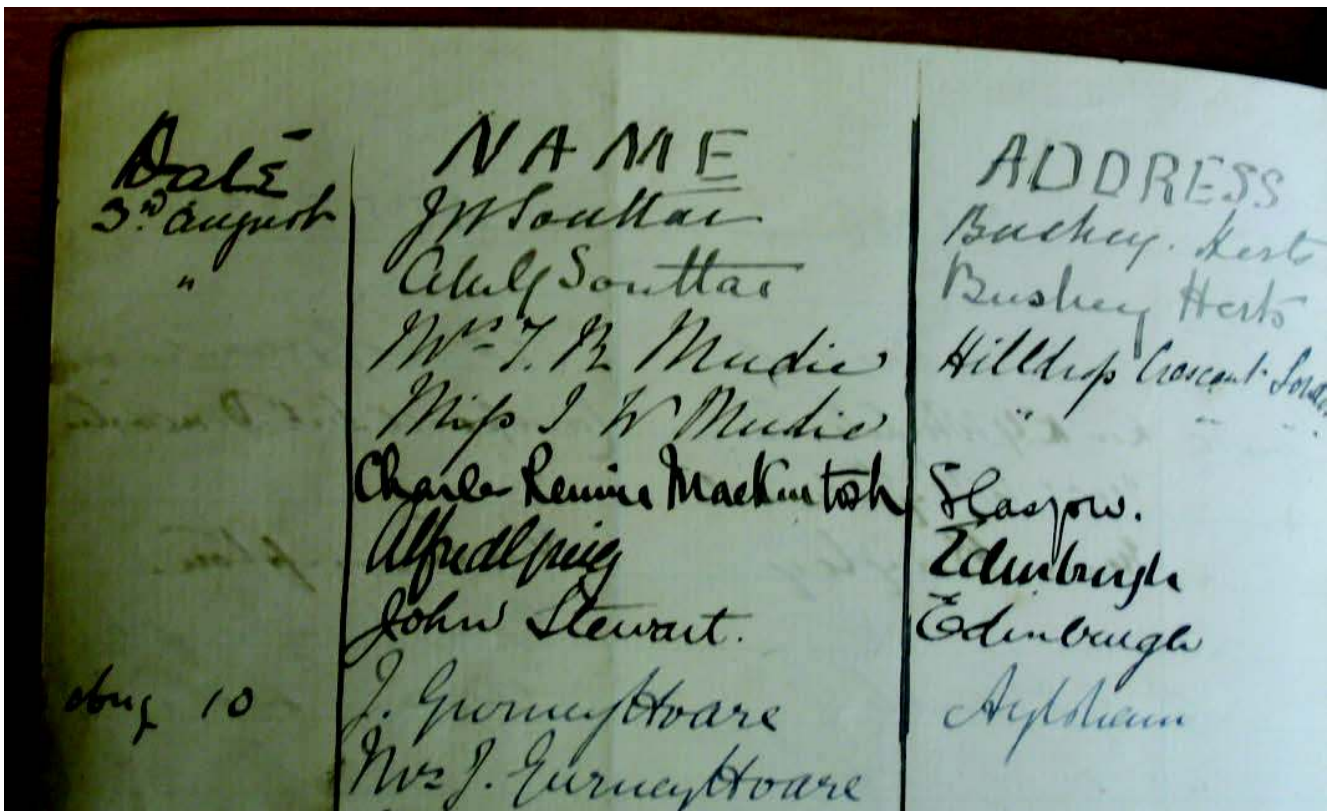 Date NAME ADDRESS
3rd August J W Souttar Bushey. Herts
" Souttar Bushey Herts
Mrs T. R. Mudie Hilldrop Crescent London
Miss I W Mudie " " "
Charles Rennie Mackintosh Glasgow.
Alfred Greig Edinburgh
John Stewart. Edinburgh
Aug 10 J. Gurney Hoare Aylsham
Mrs J. Gurney Hoare